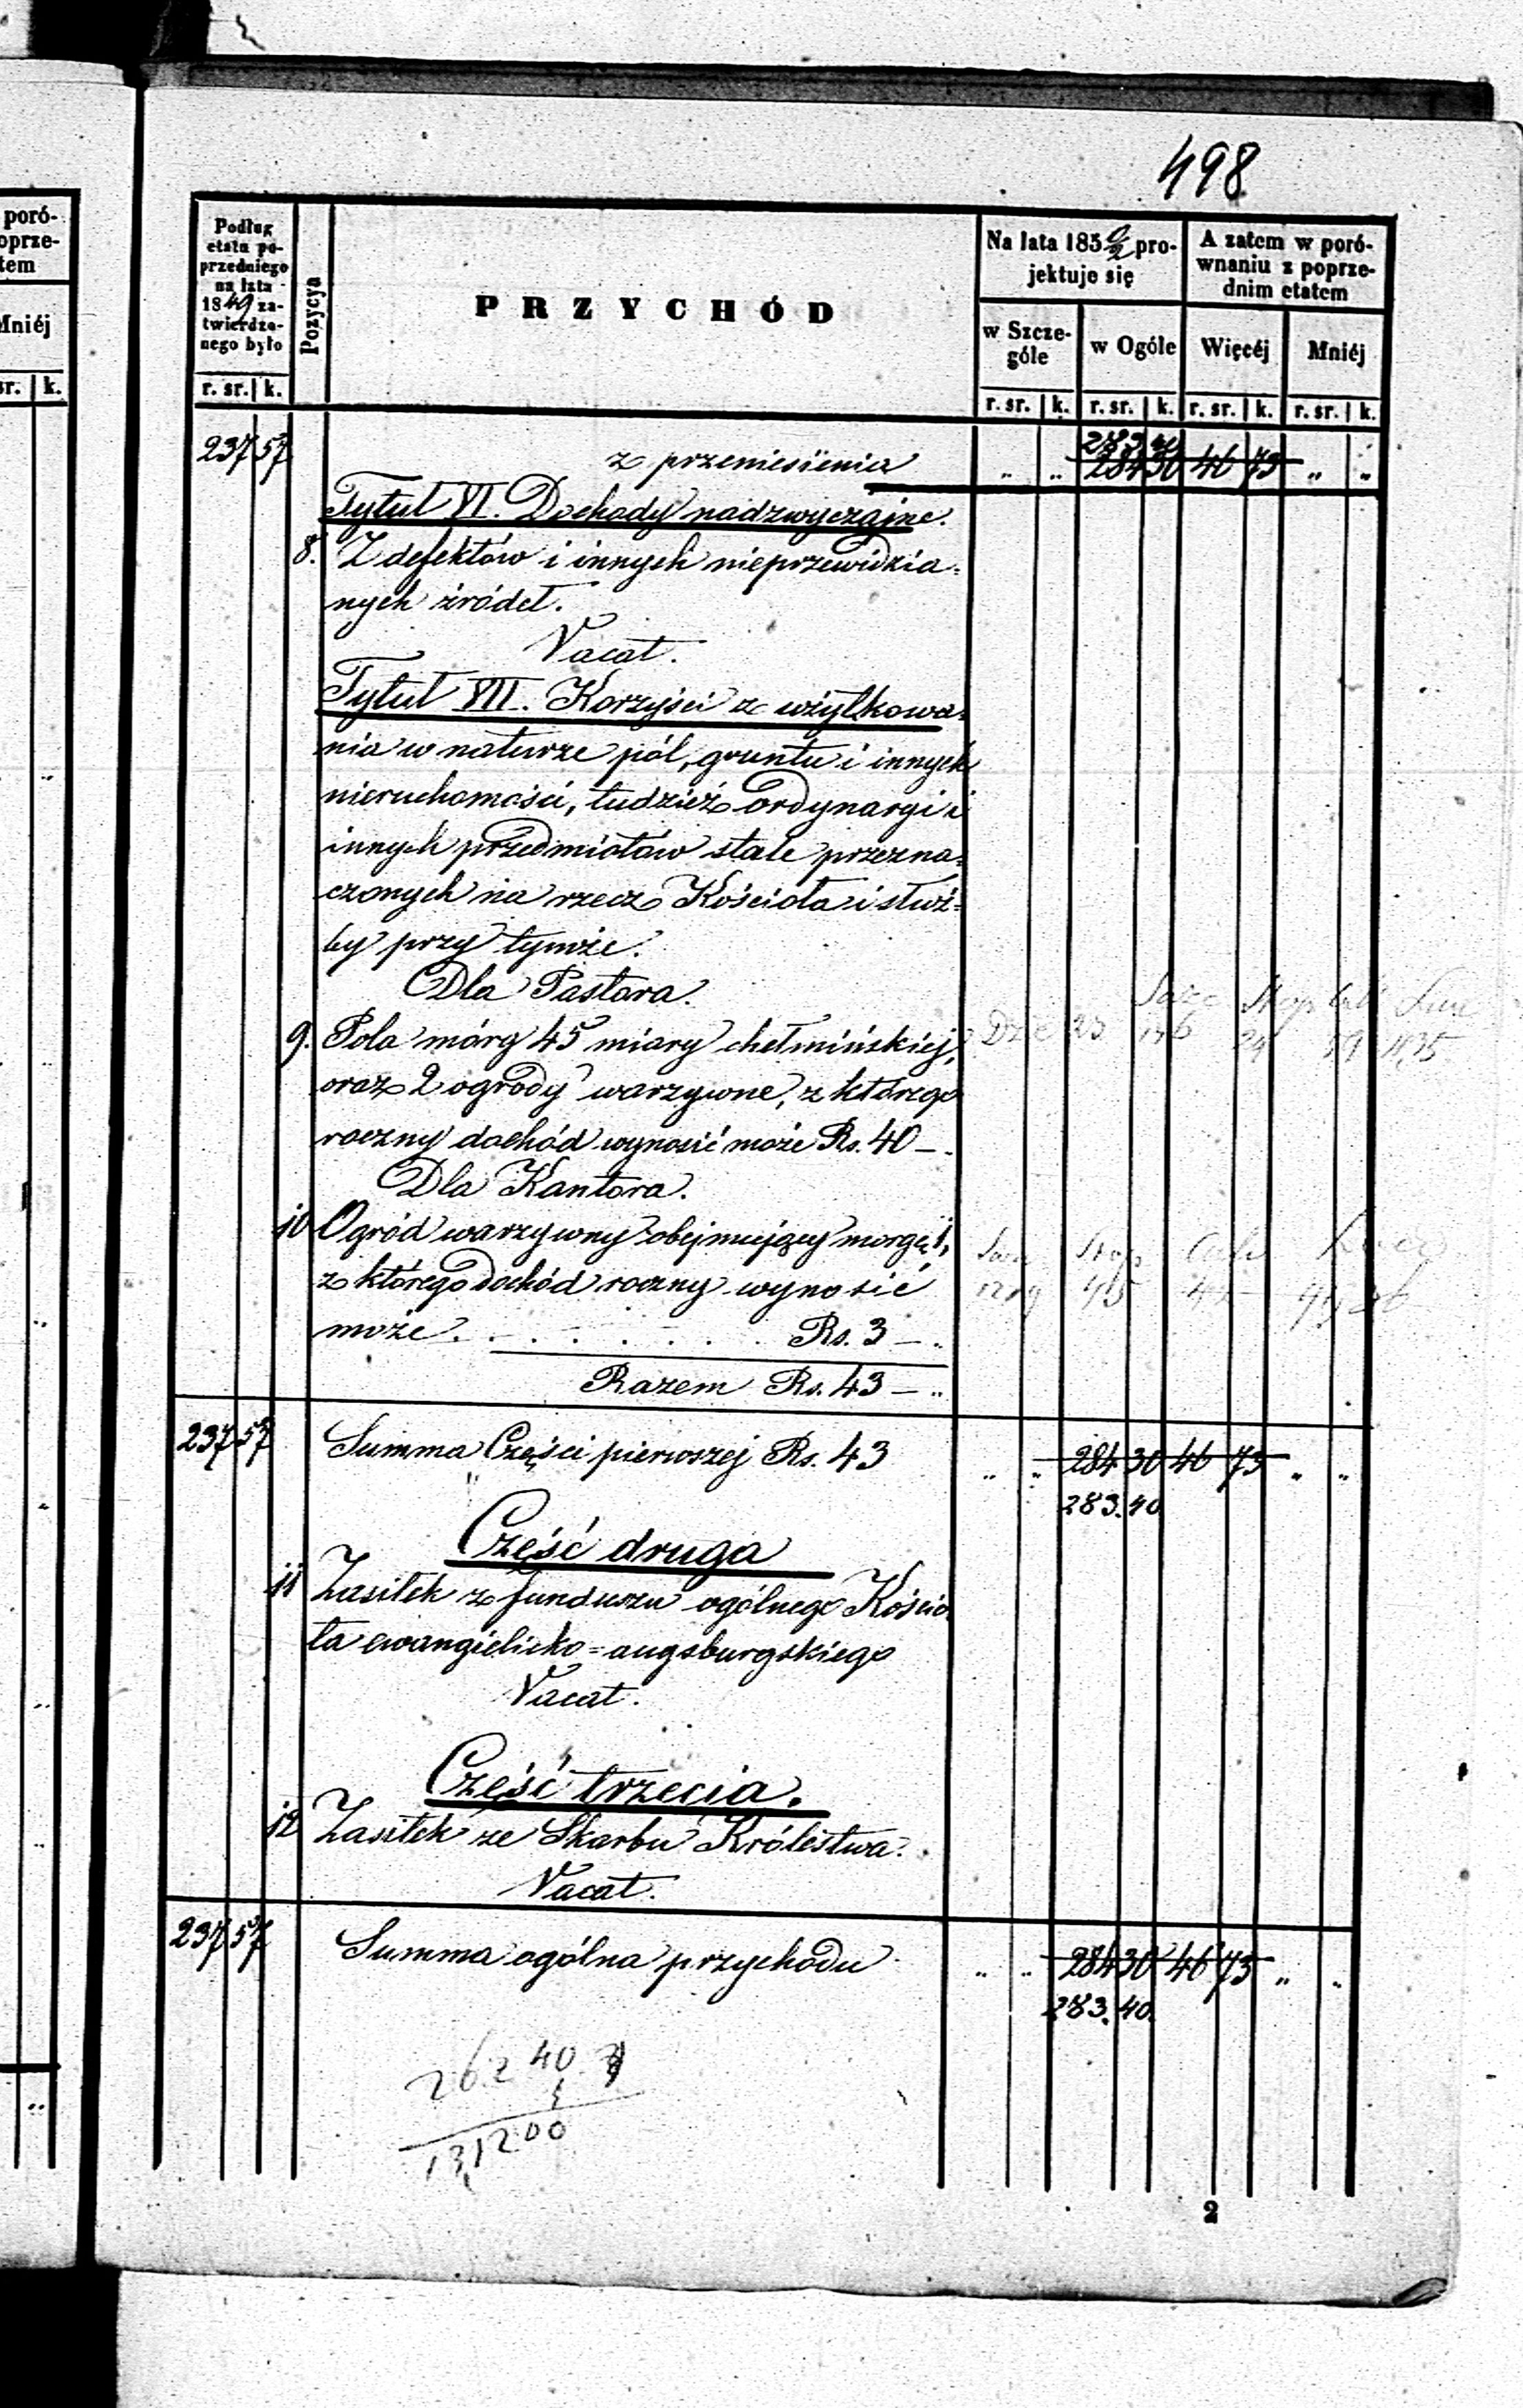 498
poró-
oprze-
tem
Mniéj
sr. k.
Podług
etatu po-
przedniego
na lata
1849 za-
twierdzo-
nego było
r. sr. k.
Pozycya
PRZYCHÓD
Na lata 1850/2 pro-
jektuje się
w Szcze-
góle
w Ogóle
r. sr. k. r. sr. k.
A zatem w poró-
wnaniu z poprze-
dnim etatem
Więcéj Mniéj
r. sr. k. r. sr. k.
283 40
237 57 z przeniesienia " " 284 30 46 73 " "
Tytuł VI. Dochody nadzwyczajne.
8. Z defektów i innych nieprzewidzia=
nych źródeł.
Vacat.
Tytuł VII. Korzyści z użytkowa=
nia w naturze pól, gruntu i innych
nieruchomości, tudzież ordynaryi i
innych przedmiotów stale przezna=
czonych na rzecz Kościoła i służ=
by przy tymże.
Dla Pastora.
9. Pola mórg 45 miary chełmińskiej,
oraz 2 ogrody warzywne, z którego
roczny dochód wynosić może Rs. 40 —.
Dla Kantora.
10 Ogród warzywny obejmujący morgę 1,
z którego dochód roczny wynosić
może . . . . . . . . Rs. 3 — .
Razem Rs. 43 — ..
237 57 Summa Części pierwszej Rs. 43 " " 284 30 46 73 " "
283.40
Część druga
11 Zasiłek z funduszu ogólnego Kościo
ła ewangielicko=augsburgskiego
Vacat.
Część trzecia.
12 Zasiłek ze Skarbu Królestwa.
Vacat.
237 57 Summa ogólna przychodu " " 284 30 46 73 " "
283.40.
262 40
131200
2